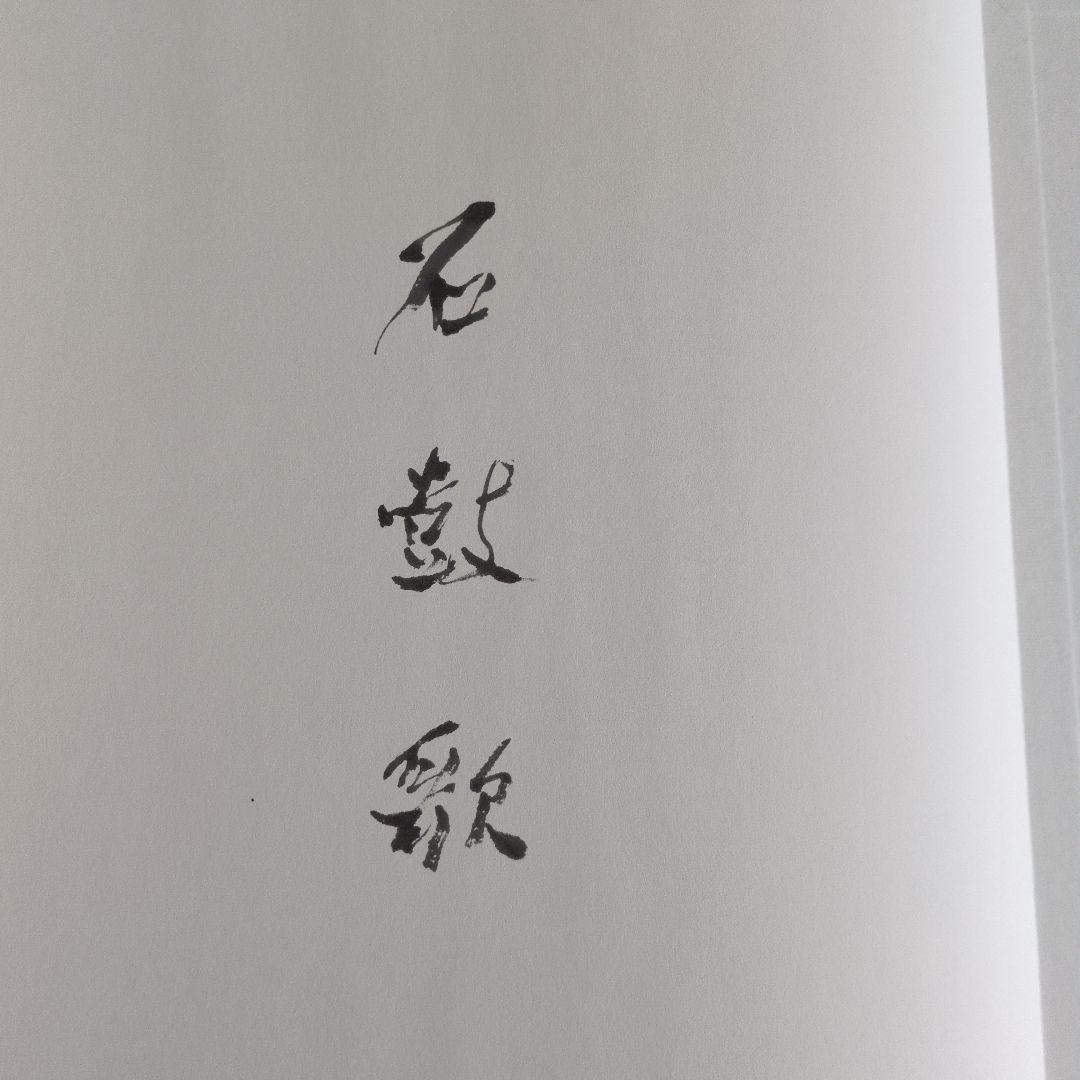 石鼓歌